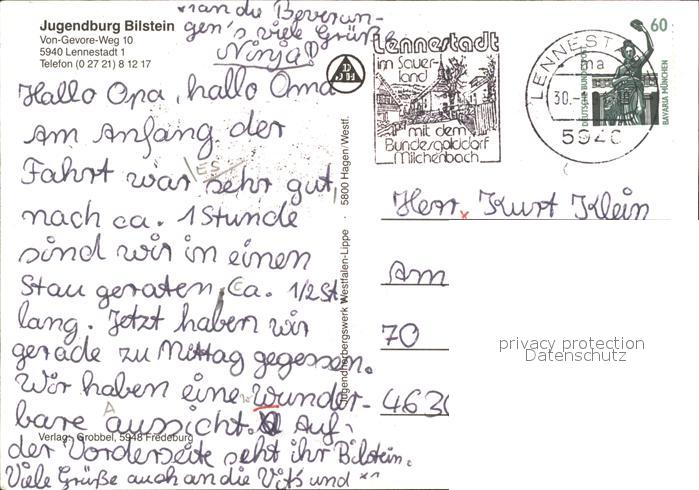 Jugendburg Bilstein
Von-Gevore-Weg 10
5940 Lennestadt 1
Telefon (0 27 21) 8 12 17
**an die Beverun-
gen's viele Grüße
Ninja!
Hallo Opa, hallo Oma
Am Anfang der
Fahrt war ES sehr gut,
nach ca. 1 Stunde
sind wir in einen
Stau geraten, Ca. 1/2 St.
lang. Jetzt haben wir
gerade zu Mittag gegessen.
Wir haben eine wunder-
bare aussicht. Auf
A
der Vorderseite seht ihr Bilstein.
Viele Grüße auch an die Vits und **
Verlag: Grobbel, 5948 Fredeburg
Jugendherbergswerk Westfalen-Lippe · 5800 Hagen/Westf.
Lennestadt
im Sauer-
land
mit dem
Bundesgolddorf
Milchenbach
LENNEST
ma
30.
5940
60
DEUTSCHE BUNDESPOST
BAVARIA MÜNCHEN
Herr Kurt Klein
Am
70
463
privacy protection
Datenschutz